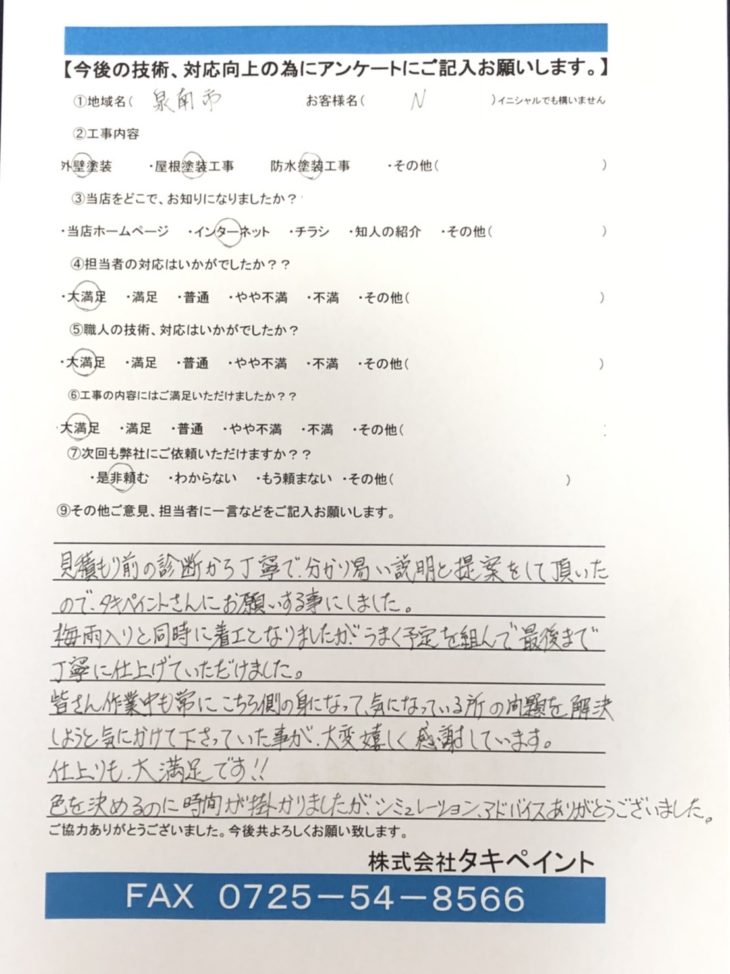 【今後の技術、対応向上の為にアンケートにご記入お願いします。】
①地域名( 泉南市 お客様名( N )イニシャルでも構いません
②工事内容
外壁塗装 ・屋根塗装工事 防水塗装工事 ・その他( )
③当店をどこで、お知りになりましたか？
・当店ホームページ ・インターネット ・チラシ ・知人の紹介 ・その他( )
④担当者の対応はいかがでしたか？？
・大満足 ・満足 ・普通 ・やや不満 ・不満 ・その他( )
⑤職人の技術、対応はいかがでしたか？
・大満足 ・満足 ・普通 ・やや不満 ・不満 ・その他( )
⑥工事の内容にはご満足いただけましたか？？
・大満足 ・満足 ・普通 ・やや不満 ・不満 ・その他(
⑦次回も弊社にご依頼いただけますか？？
・是非頼む ・わからない ・もう頼まない ・その他( )
⑨その他ご意見、担当者に一言などをご記入お願いします。
見積もり前の診断から丁寧で、分かり易い説明と提案をして頂いた
ので、タキペイントさんにお願いする事にしました。
梅雨入りと同時に着工となりましたが、うまく予定を組んで最後まで
丁寧に仕上げていただけました。
皆さん作業中も常にこちら側の身になって、気になっている所の問題を解決
しようと気にかけて下さっていた事が、大変嬉しく感謝しています。
仕上りも、大満足です!!
色を決めるのに時間が掛かりましたが、シミュレーション、アドバイスありがとうございました。
ご協力ありがとうございました。今後共よろしくお願い致します。
株式会社タキペイント
FAX 0725－54－8566